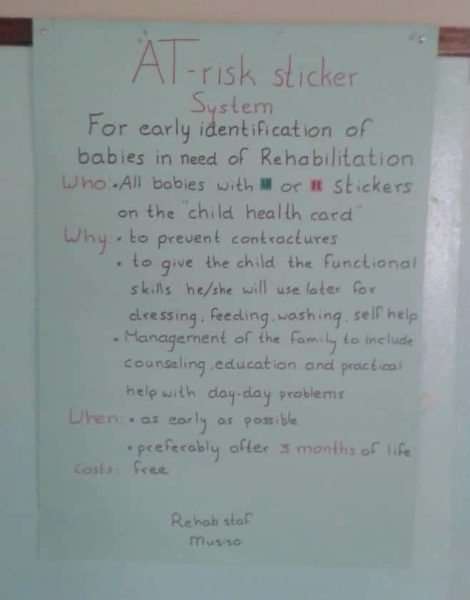 AT-risk sticker
System
For early identification of
babies in need of Rehabilitation
Who • All babies with or R stickers
on the "child health card"
Why: • to prevent contractures
• to give the child the functional
skills he/she will use later for
dressing, feeding, washing, self help
• Management of the family to include
counseling, education and practical
help with day-day problems
When: • as early as possible
• preferably after 3 months of life
Costs: free
Rehab staf
Musiso